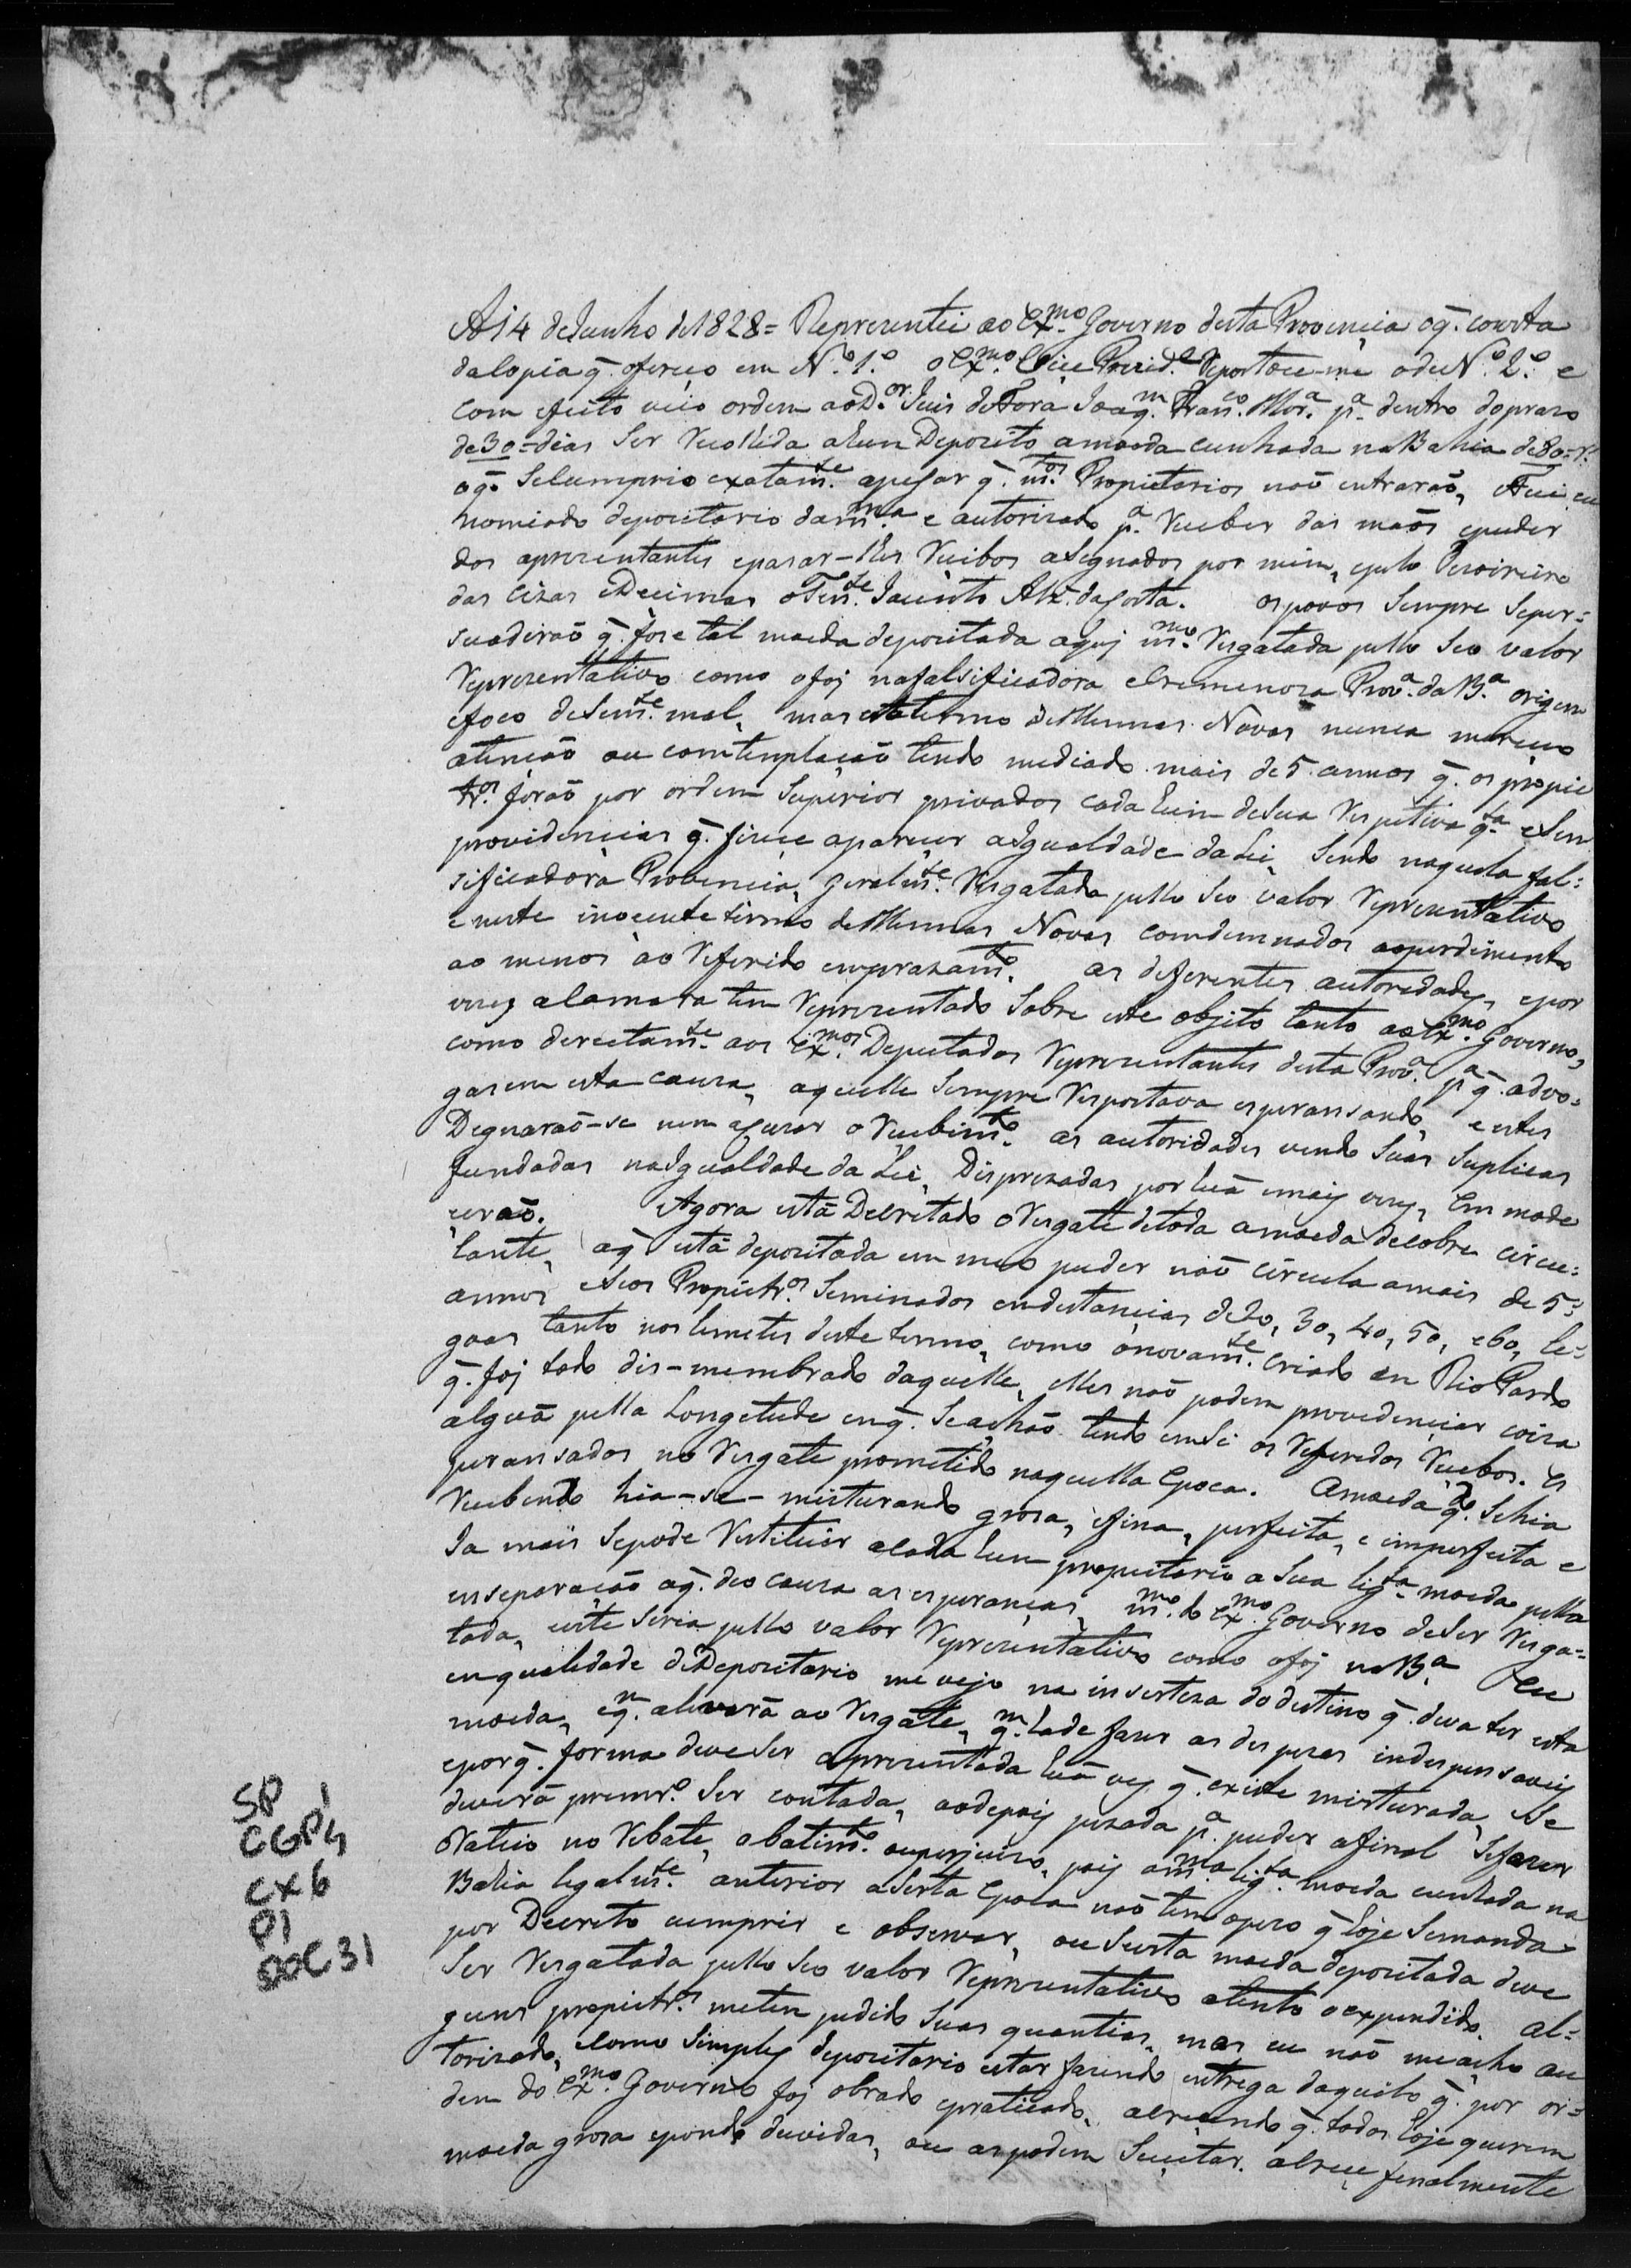 A 14 de Junho de 1828 = Reprezentei ao Ex.mo Governo desta Provencia o q̃. consta
da Copia q̃. ofereço em N.º 1.º o Ex.mo Vice Prezid.e Reportoce-me o de N.º 2.º e
com efeito veio ordem ao D.or Juis de Fora Joaq.m Fran.co Mor.a p.a dentro do prazo
de 30 = dias Ser Recolhida a hum Depozito a moeda cunhada na Bahia de 80 = r.s
o q̃. Se Cumprio exatam.te apesar q̃. m.tos Propietarios naõ entraraõ, e Fui eu
nomiado depozitario da m.ma e autorizado p.a Receber das maõs e puder
dos aprezentantes e pasar-lhes Recibos aSignados por mim, e pelo
das Cizas e Decimas o Ten.te Jacinto Alz. da Costa. os povos Sempre Seper=
suadiraõ q̃. fose tal moeda depozitada aqui m.mo Resgatada pello Seo valor
Reprezentativo como o foi na falsificadora e Creminoza Prov.a da B.a origem
e foco de Sem.te mal, mas este termo de Mennas Novas nunca mereceo
atençaõ ou comtemplaçaõ tendo mediado mais de 5 annos q̃. os propie
tr.os foraõ por ordem Superior privados cada hum de Sua Respetiva q.ta e Sem
providencias q̃. fizece aparecer a Igualdade da Lei, Sendo naquela fal=
sificadora Provencia, geralm.te Resgatada pello Seo valor Reprezentativo
e neste inocente termo de Mennas Novas comdemnados ao perdimento
ao menos ao Referido emprazam.to as diferentes autoredades, e por
vezes a Camara tem Reprezentado Sobre este objeto tanto ao Ex.mo Governo,
como derectam.te aos Ex.mos Deputados Reprezentantes desta Prov.a p.a q̃. advo=
gasem esta causa, aquelle Sempre Respostava esperansando, e estes
Degnaraõ-se nem acuzar o Recebim.to as autoridades vendo Suas Suplicas
fundadas na Igualdade da Lei, Disprezadas por huã e mais vezes, Em mode
ceraõ. Agora está Decretado o Resgate de toda a moeda de Cobre circu=
lante, a q̃. está depozitada em meo puder naõ circula a mais de 5=
annos e Seos Propietr.os Seminados em destancias de 20, 30, 40, 50, e 60, le=
goas tanto nos lemetes deste termo, como o novam.te Criado em Rio Pardo
q̃. foi todo dis-membrado daquelle, elles naõ podem providenciar coiza
alguã pella Longetude em q̃. Se achaõ tendo em Si os Referidos Recibos. es
peransados no Resgate prometido naquella Epoca. A moeda q.do Se hia
Recebendo hia-se-misturando grosa, e fina, perfeita, e imperfeita e
Ja mais Se pode Restituir a Cada hum propietario a Sua lig.ta moeda pella
enseparaçaõ a q̃. deo causa as esperanças, m.mo do Ex.mo Governo de Ser Resga=
tada, este Seria pello valor Reprezentativo como o foi na B.a Eu
em qualidade de Depozitario me vejo na inserteza do destino q̃. deva ter esta
moeda, e q.m a levará ao Resgate, q.m hade fazer as despezas indespensaveis
e por q̃. forma deve Ser aprezentada huã vez q̃. existe misturada, Se
deverá premr.o Ser contada, ao depois pezada p.a puder afinal Se fazer
o Rateio no Rebate, abatim.to ou perjuizo, pois a m.ma lig.ta moeda cunhada na
Bahia legalm.te anterior a Serta Epoca naõ tem o pezo q̃ hoje Se manda
por Decreto cumprir e observar, ou Se esta moeda depozitada deve
Ser Resgatada pello Seo valor Reprezentativo atento o expendido. al=
guns propietr.os me tem pedido Suas quantias, mas eu naõ me acho au
torizado, Como Simples depozitario estar fazendo entrega daquilo q̃. por or=
dem do Ex.mo Governo foi obrado e praticado, acrecendo q̃. todos hoje querem
moeda grosa e pondo duvidas, ou as podem Sucitar. acrece fenalmente
SP
CGP4
CX6
P1
DOC31